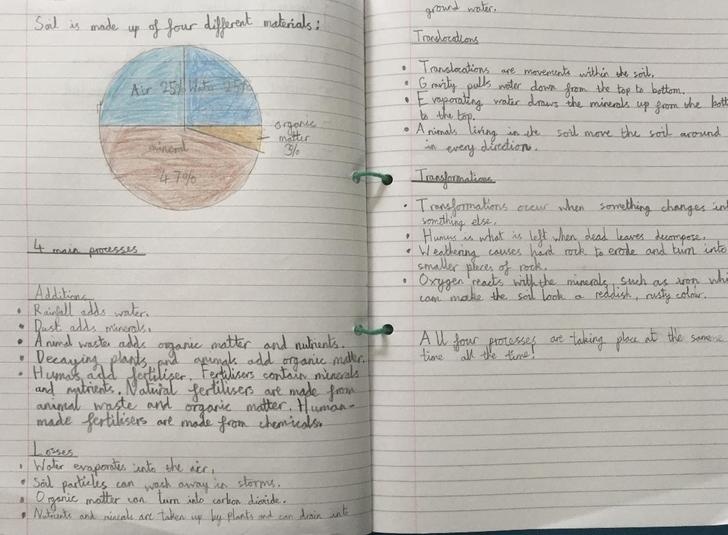 Soil is made up of four different materials:
Air 25%
Water 25%
organic
matter
3%
mineral
47%
4 main processes
Additions
• Rainfall adds water.
• Dust adds minerals.
• Animal waste adds organic matter and nutrients.
• Decaying plants and animals add organic matter.
• Humas add fertiliser. Fertilisers contain minerals
and nutrients. Natural fertilisers are made from
animal waste and organic matter. Human-
made fertilisers are made from chemicals.
Losses
• Water evaporates into the air.
• Soil particles can wash away in storms.
• Organic matter can turn into carbon dioxide.
• Nutrients and minerals are taken up by plants and can drain into
ground water.
Translocations
• Translocations are movements within the soil.
• Gravity pulls water down from the top to bottom.
• Evaporating water draws the minerals up from the bott
to the top.
• Animals living in the soil move the soil around
in every direction.
Transformations
• Transformations occur when something changes int
something else.
• Humus is what is left when dead leaves decompose.
• Weathering causes hard rock to erode and turn into
smaller pieces of rock.
• Oxygen reacts with the minerals, such as iron whi
can make the soil look a reddish, rusty colour.
All four processes are taking place at the same
time all the time!